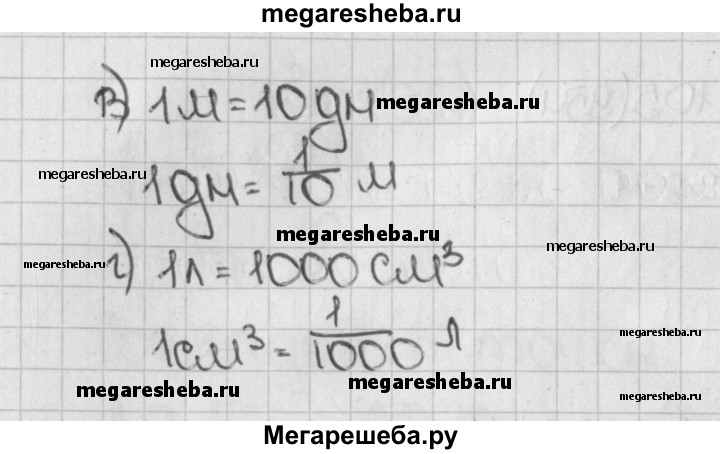 megaresheba.ru
megaresheba.ru
в) 1 м = 10 дм megaresheba.ru
megaresheba.ru 1 дм = 1/10 м
megaresheba.ru
megaresheba.ru
megaresheba.ru г) 1 л = 1000 см³
megaresheba.ru
1 см³ = 1/1000 л
megaresheba.ru
megaresheba.ru
megaresheba.ru
Мегарешеба.ру